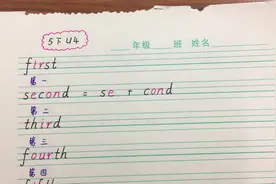 5下U4
年级 班 姓名
first
第一
second = se + cond
第二
third
第三
fourth
第四
fifth